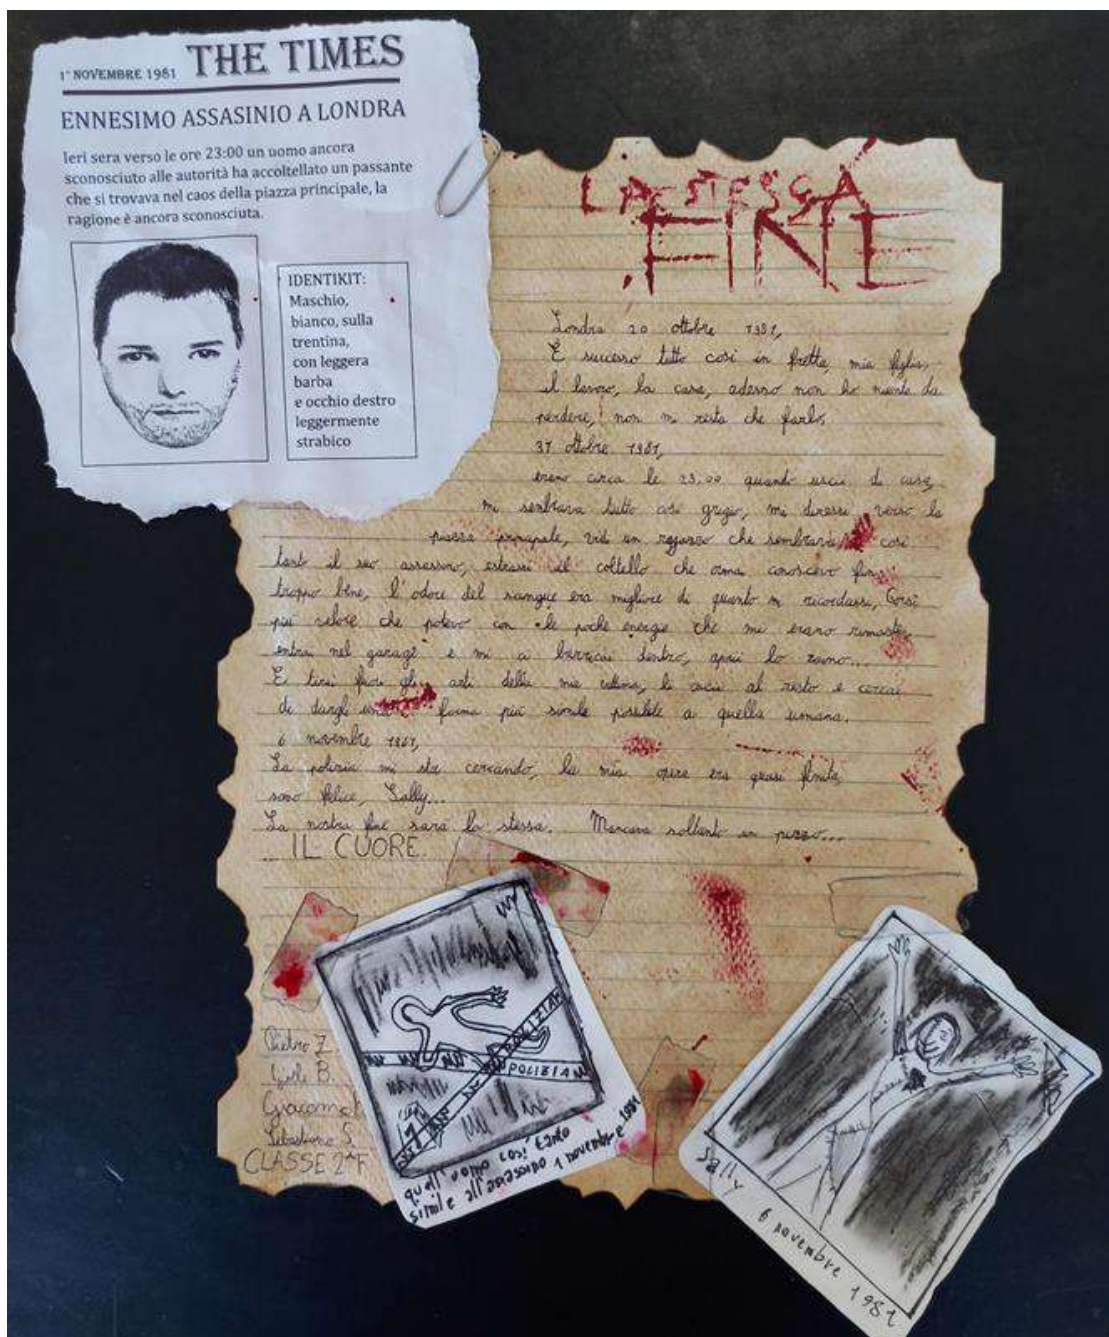 1° NOVEMBRE 1981 THE TIMES
ENNESIMO ASSASINIO A LONDRA
Ieri sera verso le ore 23:00 un uomo ancora
sconosciuto alle autorità ha accoltellato un passante
che si trovava nel caos della piazza principale, la
ragione è ancora sconosciuta.
IDENTIKIT:
Maschio,
bianco, sulla
trentina,
con leggera
barba
e occhio destro
leggermente
strabico
LA STESSA
FINE
Londra 20 ottobre 1981,
È successo tutto così in fretta, mia figlia,
il lavoro, la casa, adesso non ho niente da
perdere, non mi resta che farlo,
31 ottobre 1981,
erano circa le 23:00 quando uscii di casa,
mi sembrava tutto così grigio, mi diressi verso la
piazza principale, vidi un ragazzo che sembrava così
tanto il suo assassino, estrassi il coltello che ormai conoscevo fin
troppo bene, l'odore del sangue era migliore di quanto mi ricordassi, Corsi
più veloce che potevo con le poche energie che mi erano rimaste,
entrai nel garage e mi ci barricai dentro, aprii lo zaino...
E tirai fuori gli arti della mia vittima, li cucii al resto e cercai
di dargli una forma più simile possibile a quella umana.
6 novembre 1981,
La polizia mi sta cercando, la mia opera era quasi finita,
sono felice, Sally...
La nostra fine sarà la stessa. Mancava soltanto un pezzo...
IL CUORE.
Pietro Z.
B.
Sebastiano S.
CLASSE 2^F
POLIZIA
POLIZIA
quell'uomo così tanto
simile all'assassino 1 novembre 1981
Sally 6 novembre 1981